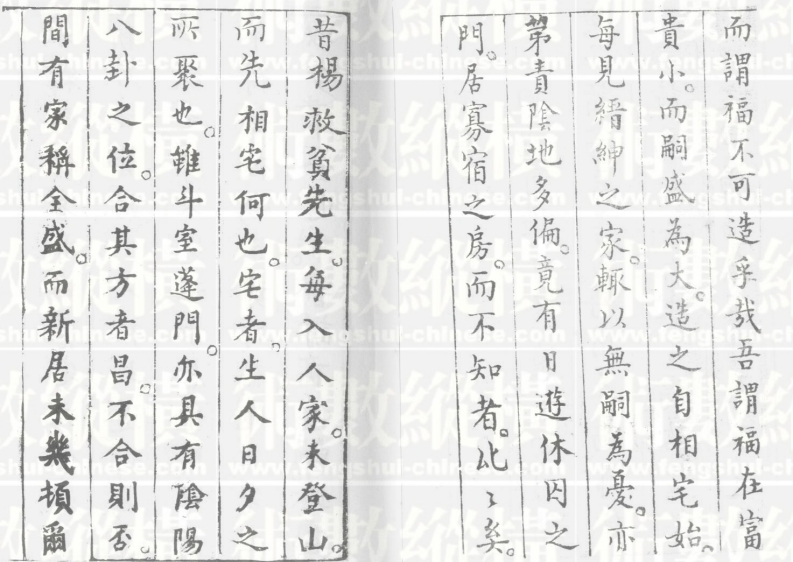 而謂福不可造乎哉吾謂福在富
貴小。而嗣盛為大。造之自相宅始。
每見縉紳之家。輒以無嗣為憂。亦
第責陰地多偏。竟有日遊休囚之
門。居寡宿之房。而不知者。比〻矣。
昔楊救貧先生。每入人家。未登山。
而先相宅何也。宅者。生人日夕之
所聚也。雖斗室蓬門。亦具有陰陽
八卦之位。合其方者昌。不合則否。
間有家稱全盛。而新居未幾頓爾